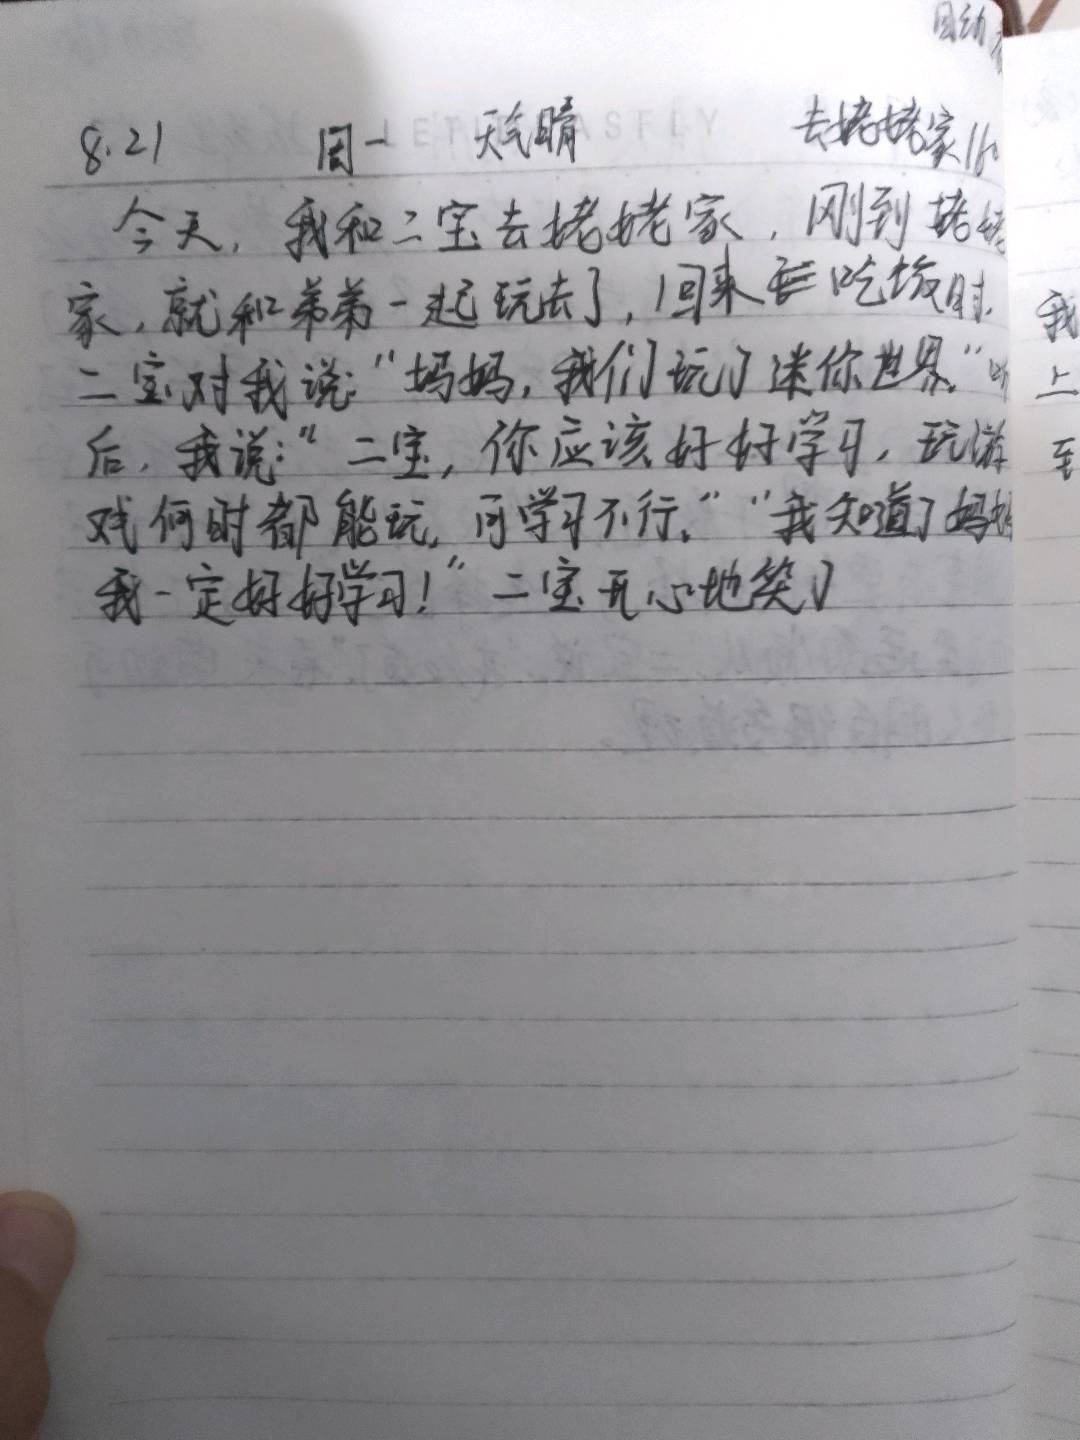 8.21 周一 天气晴 去姥姥家
今天，我和二宝去姥姥家，刚到姥姥
家，就和弟弟一起玩去了，回来吃饭时，
二宝对我说：“妈妈，我们玩了迷你世界。”听
后，我说：“二宝，你应该好好学习，玩游
戏何时都能玩，可学习不行。”“我知道了妈妈
我一定好好学习！”二宝开心地笑了
我
上
至